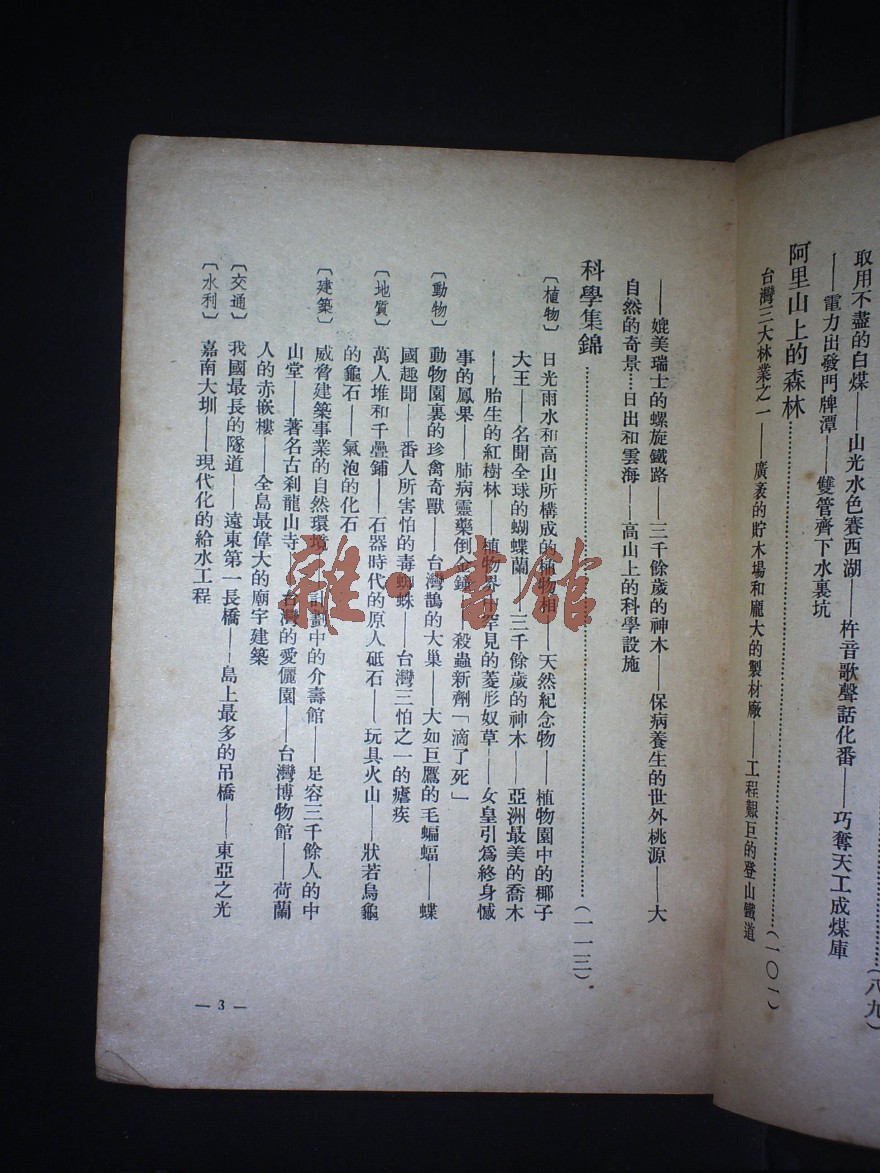 取用不盡的白煤——山光水色賽西湖——杵音歌聲話化番——巧奪天工成煤庫
——電力出發門牌潭——雙管齊下水裏坑
(八九)
阿里山上的森林……(一〇一)
台灣三大林業之一——廣袤的貯木場和龐大的製材廠——工程艱巨的登山鐵道
——媲美瑞士的螺旋鐵路——三千餘歲的神木——保病養生的世外桃源——大
自然的奇景……日出和雲海——高山上的科學設施
科學集錦……(一一三)
〔植物〕日光雨水和高山所構成的植物相——天然紀念物——植物園中的椰子
大王——名聞全球的蝴蝶蘭——三千餘歲的神木——亞洲最美的喬木
——胎生的紅樹林——植物界中罕見的菱形奴草——女皇引為終身憾
事的鳳果——肺病靈藥倒金鐘——殺蟲新劑「滴了死」
〔動物〕動物園裏的珍禽奇獸——台灣鵲的大巢——大如巨鷹的毛蝙蝠——蝶
國趣聞——番人所害怕的毒蜘蛛——台灣三怕之一的瘧疾
〔地質〕萬人堆和千疊鋪——石器時代的原人砥石——玩具火山——狀若烏龜
的龜石——氣泡的化石
〔建築〕威脅建築事業的自然環境——計劃中的介壽館——足容三千餘人的中
山堂——著名古刹龍山寺——台灣的愛儷園——台灣博物館——荷蘭
人的赤嵌樓——全島最偉大的廟宇建築
〔交通〕我國最長的隧道——遠東第一長橋——島上最多的吊橋——東亞之光
〔水利〕嘉南大圳——現代化的給水工程
— 3 —
雜·書館